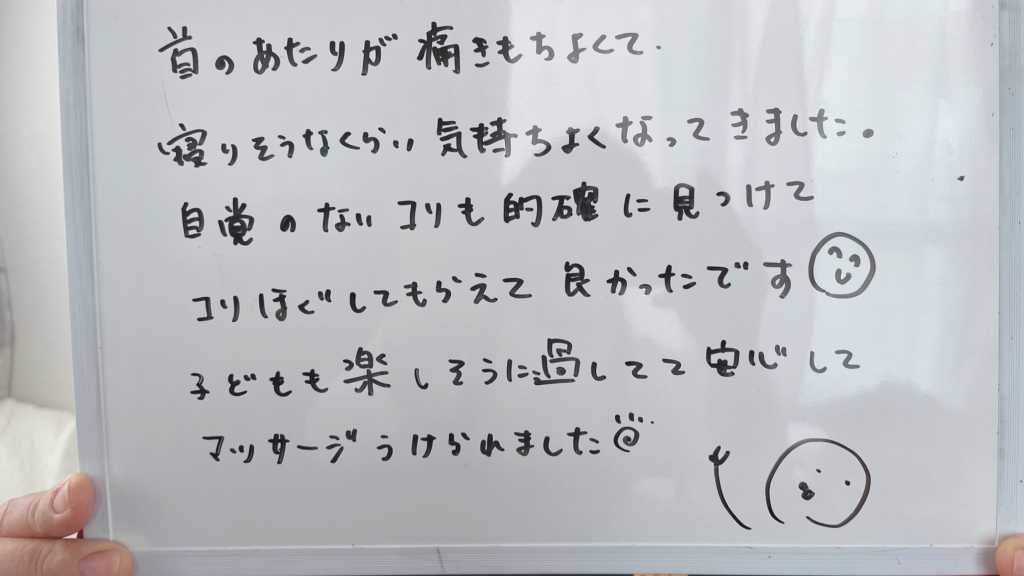 首のあたりが痛きもちよくて.
寝りそうなくらい気持ちよくなってきました。
自覚のないコリも的確に見つけて
コリほぐしてもらえて良かったです
子どもも楽しそうに過してて安心して
マッサージうけられました